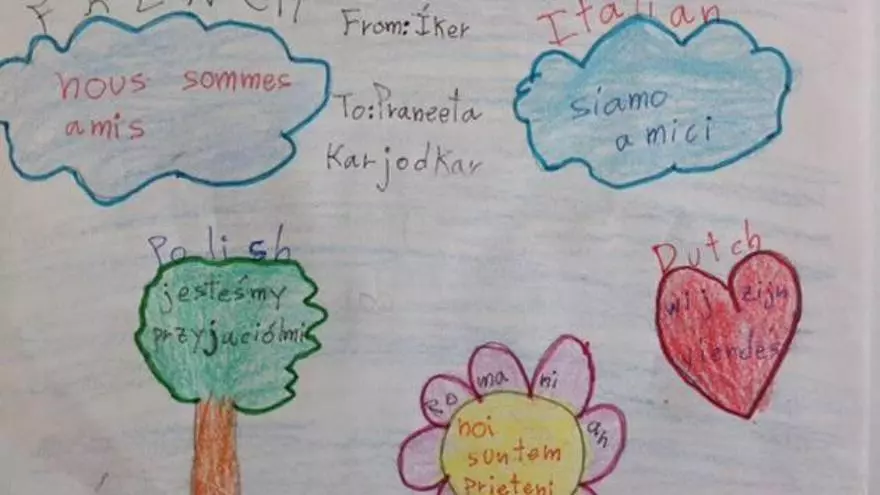 FRENCH
nous sommes
amis
From: Íker
To: Praneeta
Karjodkar
Italian
siamo
amici
Polish
jesteśmy
przyjaciółmi
Dutch
wij zijn
Romanian
noi
suntem
prieteni